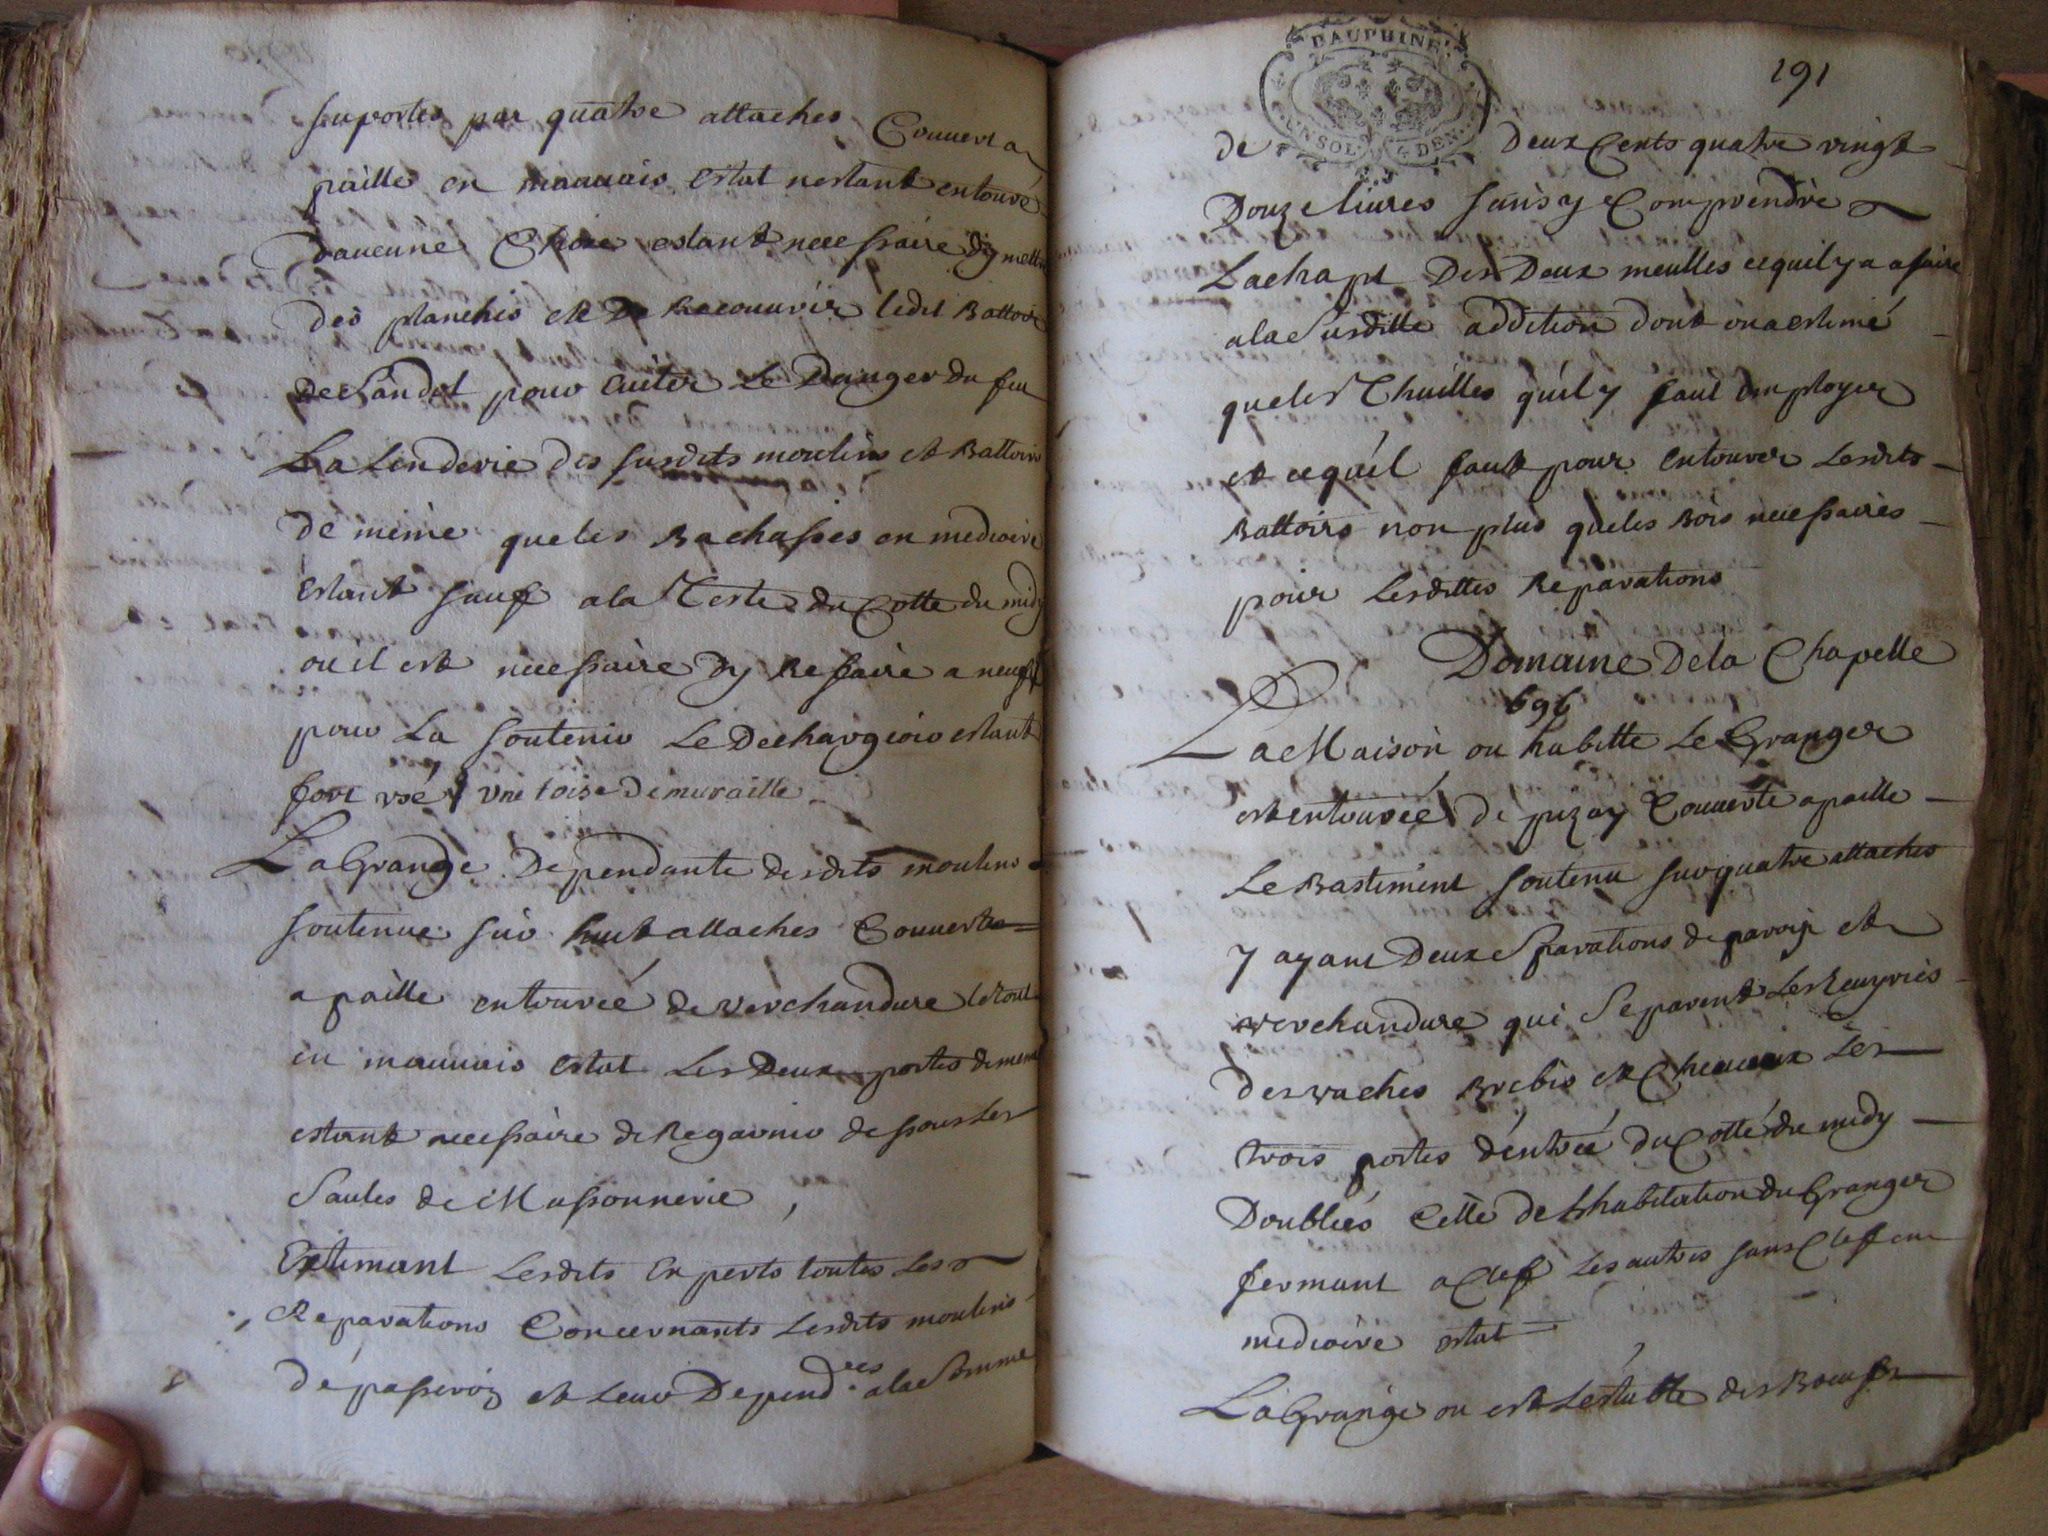 suportés par quatre attaches Couvert a
paille en mauuais estat nestant entouré
daucune Chose estant necessaire dÿ mettre
des planches et De Recouurir ledit Battoir
de pour euiter Le Danger du feu
La Lenderie des susdits moulins et Battoirs
de même que les Bachasses en mediocre
estant sauf a la Teste du Cotte du midy
ou il est necessaire Dy Refaire a neuf
pour La soutenir Le Dechargioir estant
fort usé / Une toise de muraille
La Grange Dependante desdits moulins
soutenue sur huit attaches Couverte
a paille entourée de verchandure le tout
en mauuais estat Les Deux portes de meme
estant necessaire de Regarnir dessous Les
Saules de Massonnerie,
Estimant Lesdits Experts toutes Les
Reparations Concernants Lesdits moulins
et Leur Depend.ces a la Somme
191
DAUPHINE
UN SOL 4 DEN.
de Deux Cents quatre vingt
Douze liures sans y Comprendre
Lachapt Des Deux meulles ce quil y a a faire
a la Susditte addition dont on a estimé
que les Thuilles qu'il y faut employer
et ce qu'il faut pour entourer Lesdits
Battoirs non plus que les Bois necessaires
pour Lesdittes Reparations
Domaine De la Chapelle
696
La Maison ou habitte Le Granger
est entourée de pizay Couverte a paille
Le Bastiment soutenu sur quatre attaches
y ayant Deux Separations de et
verchandure qui Separent Les
des vaches Brebis et Cheuaux Les
trois portes d'entrée du Cotté du midy
Doublées Celle de Lhabitation du Granger
fermant a Clef Les autres sans Clef en
mediocre estat
La Grange ou est Lestable des Boeufs